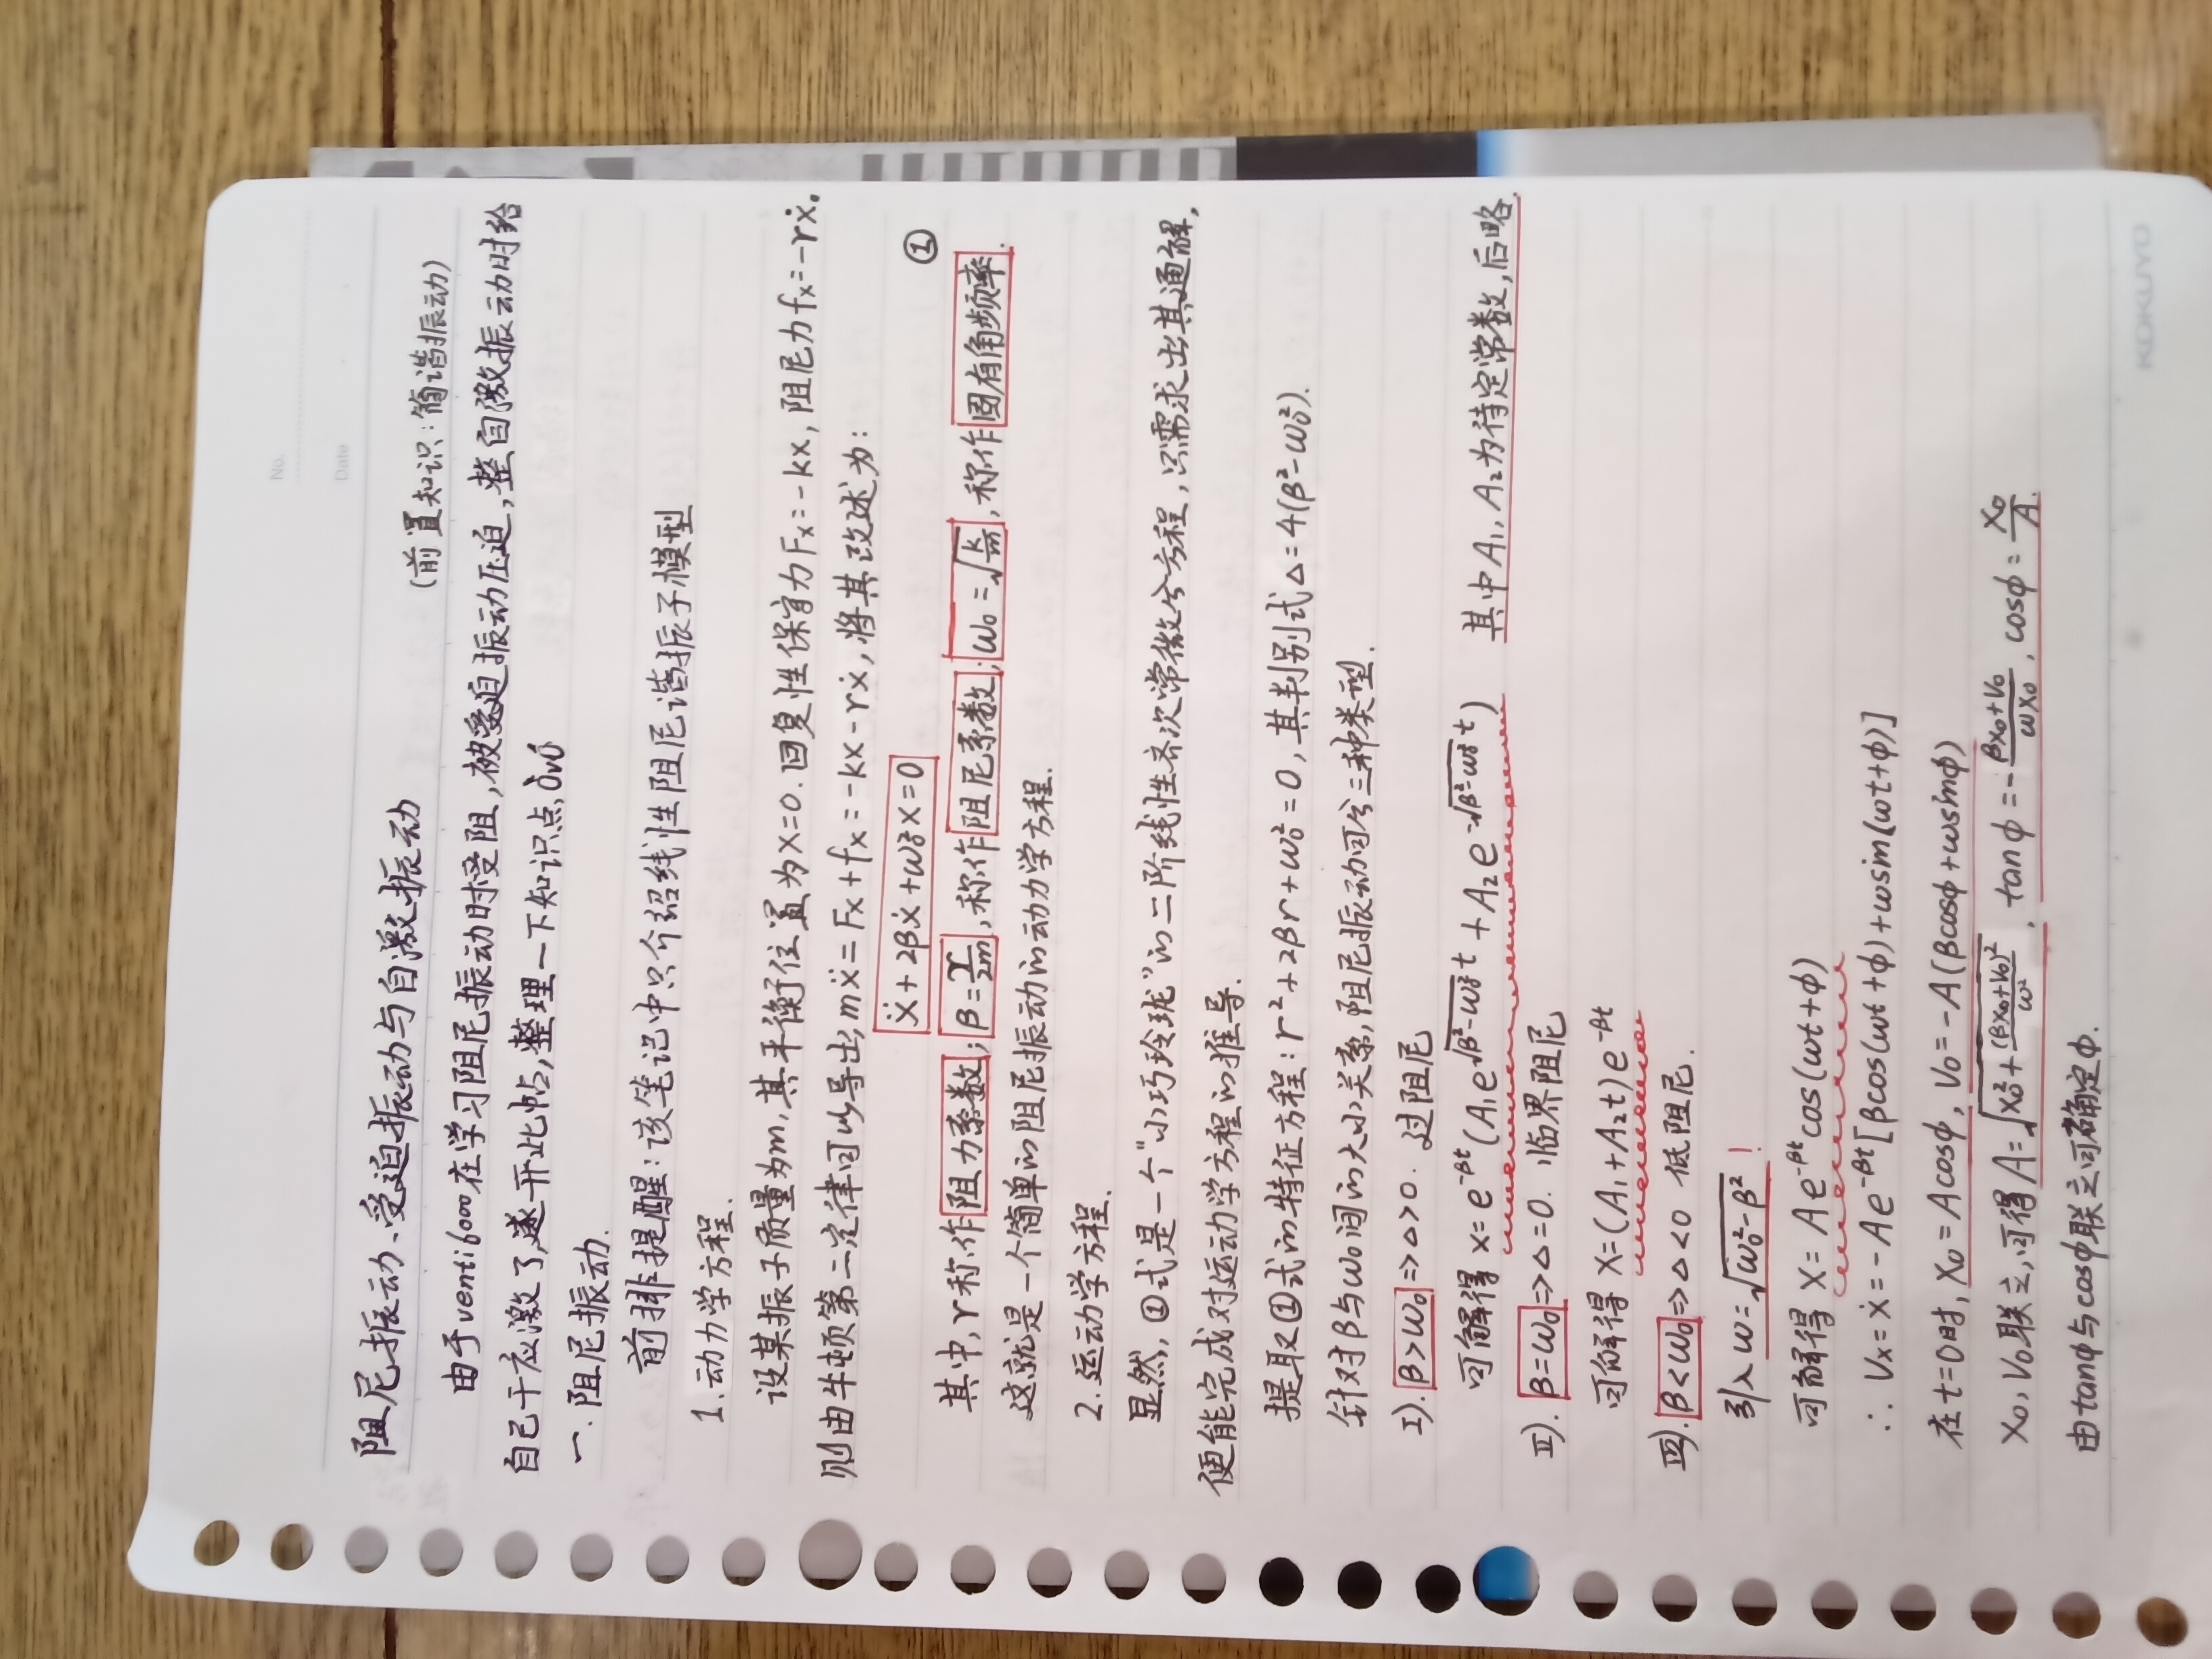 No.
Date
阻尼振动、受迫振动与自激振动
(前置知识:简谐振动)
由于ventib在学习阻尼振动时受阻,被受迫振动压迫,整自激振动时给
自己干应激了,遂开此帖,整理一下知识点òvó
一.阻尼振动.
前排提醒:该笔记中只介绍线性阻尼谐振子模型
1.动力学方程.
设某振子质量为m,其平衡位置为x=0.回复性保守力Fx=-kx,阻尼力fx=-rẋ.
则由牛顿第二定律可以导出:mẍ=Fx+fx=-kx-rẋ,将其改述为:
ẍ+2βẋ+ω₀²x=0 ①
其中,r称作阻力系数;β=r/2m,称作阻尼系数;ω₀=√(k/m),称作固有角频率.
这就是一个简单的阻尼振动的动力学方程.
2.运动学方程.
显然,①式是一个"小巧玲珑"的二阶线性齐次常微分方程,只需求出其通解,
便能完成对运动学方程的推导.
提取①式的特征方程:r²+2βr+ω₀²=0,其判别式Δ=4(β²-ω₀²).
针对β与ω₀间的大小关系,阻尼振动可分三种类型.
I).β>ω₀⇒Δ>0. 过阻尼
可解得 x=e^(-βt)(A₁e^(√(β²-ω₀²)t)+A₂e^(-√(β²-ω₀²)t)) 其中A₁、A₂为待定常数,后略.
II).β=ω₀⇒Δ=0. 临界阻尼
可解得 x=(A₁+A₂t)e^(-βt)
III).β<ω₀⇒Δ<0 低阻尼.
引入ω=√(ω₀²-β²)!
可解得 x=Ae^(-βt)cos(ωt+ϕ)
∴Vx=ẋ=-Ae^(-βt)[βcos(ωt+ϕ)+ωsin(ωt+ϕ)]
在t=0时,x₀=Acosϕ,V₀=-A(βcosϕ+ωsinϕ)
x₀,V₀联立,可得A=√(x₀²+(βx₀+V₀)²/ω²),tanϕ=-(βx₀+V₀)/(ωx₀),cosϕ=x₀/A.
由tanϕ与cosϕ联立可确定ϕ.
KOKUYO